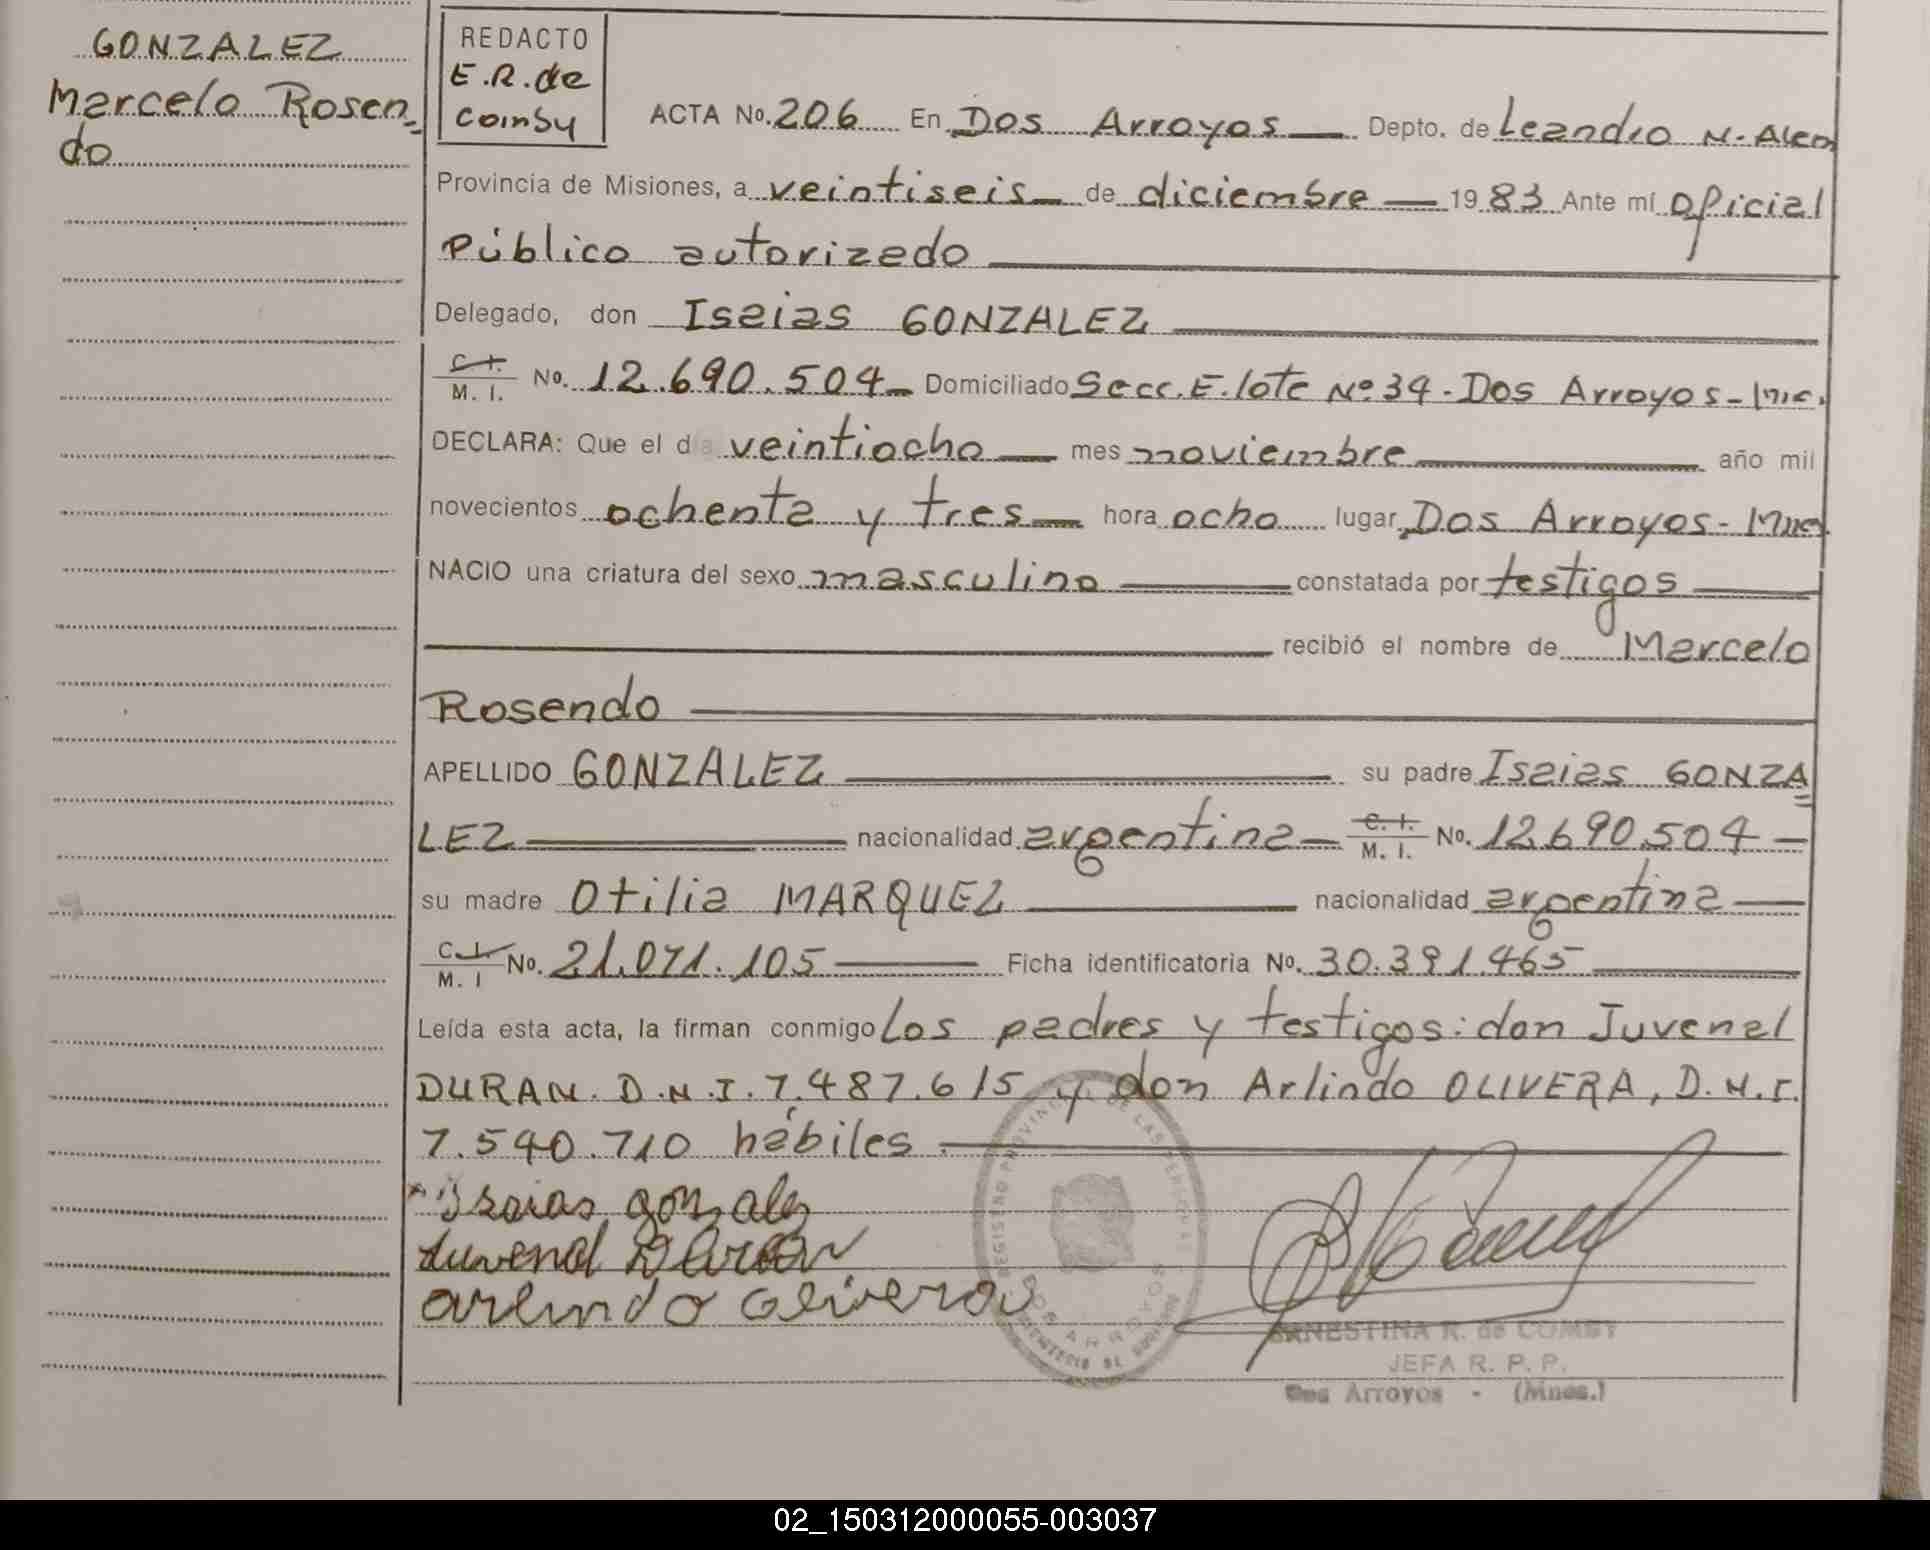 GONZALEZ
Marcelo Rosen-
do
REDACTO
E.R. de
ACTA No. 206 En Dos Arroyos Depto. de Leandro N. Alem
Provincia de Misiones, a veintiseis de diciembre 1983 Ante mí oficial
Público autorizado
Delegado, don Isaias GONZALEZ
C. I.
M. I. No. 12.690.504 Domiciliado Secc. E. lote Nº 34 - Dos Arroyos -
DECLARA: Que el día veintiocho mes noviembre año mil
novecientos ochenta y tres hora ocho lugar Dos Arroyos -
NACIO una criatura del sexo masculino constatada por testigos
recibió el nombre de Marcelo
Rosendo
APELLIDO GONZALEZ su padre Isaias GONZA
LEZ nacionalidad argentina C. I.
M. I. No. 12.690.504
su madre Otilia MARQUEZ nacionalidad argentina
C. I.
M. I No. 21.071.105 Ficha identificatoria No. 30.391.465
Leída esta acta, la firman conmigo Los padres y testigos: don Juvenal
DURAN. D.N.I. 7.487.615 y don Arlindo OLIVERA, D.N.I.
7.540.710 hábiles
Isaias gonzalez
Juvenal Duran
REGISTRO PROVINCIAL DE LAS PERSONAS
DOS ARROYOS
MINISTERIO DE GOBIERNO
ERNESTINA R. de
JEFA R. P. P.
Dos Arroyos - (Mnes.)
02_150312000055-003037